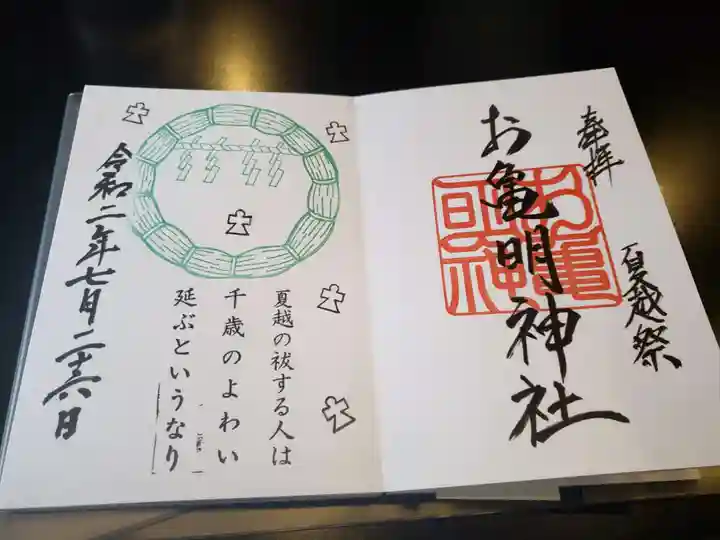 奉拝
夏越祭
お亀明神社
夏越の祓する人は
千歳のよわい
延ぶというなり
令和二年七月二十六日